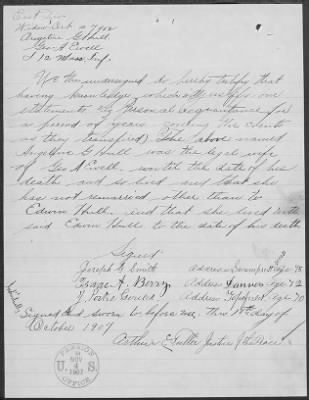 East Div
Widow Ctf. 7902
Angeline G Hull
Geo. A Ewell
I 12 Mass Inf.
We the undersigned do hereby testify that
having knowledge, which will us, of our
statements by personal acquaintance for
a period of years (noting the events
as they transpired) The above named
Angeline G Hull was the legal wife
of Geo A Ewell, until the date of his
death and so lived and that she
has not remarried other than to
Edwin Hull. and that she lived with
said Edwin Hull to the date of his death
Signed
Joseph G Smith Address age 78
Isaac A. Berry Address age 72
Address age 70
Signed and sworn to before me. this day of
October 1907
Arthur E Justice of the Peace
PENSION
NOV
4
1907
U. S.
OFFICE